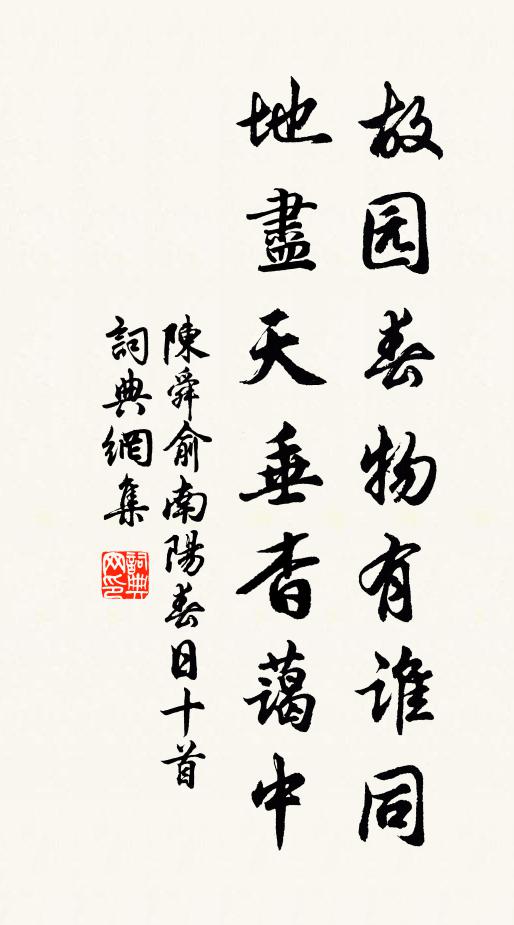 故园春物有誰同
地盡天垂杳藹中
陳舜俞南陽春日十首
詞典網集
詞典网印